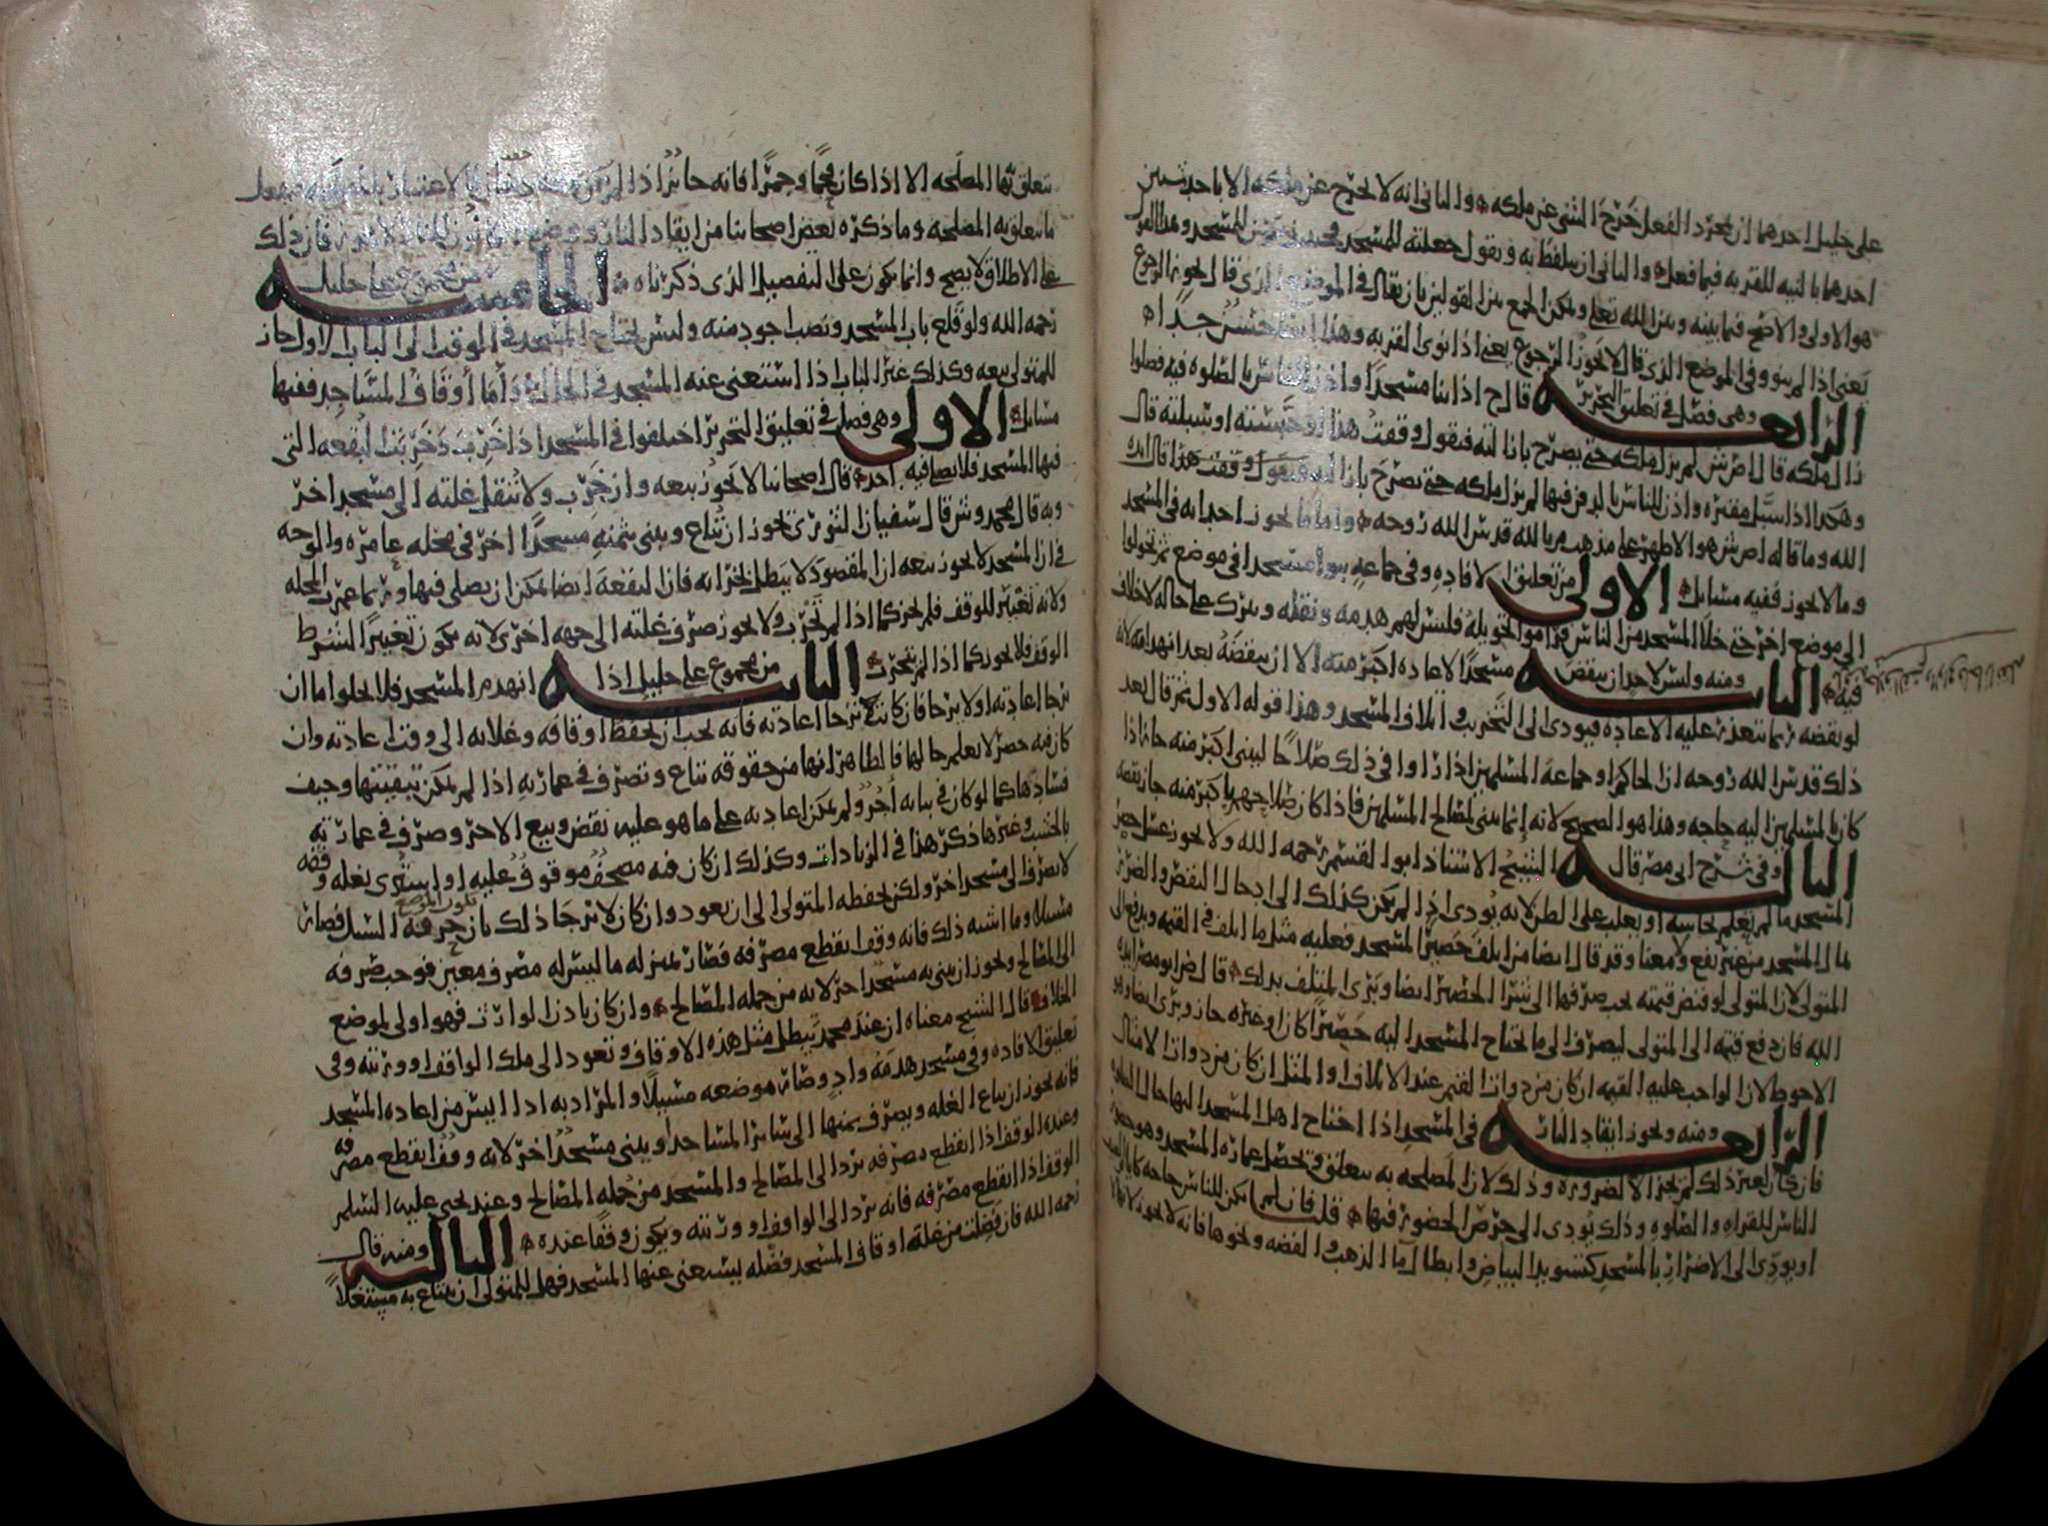 على خليل احدهما ان بمجرد الفعل خرج الشى عن ملكه والثانى انه لا يخرج عن ملكه الا باحد شيين
احدهما بالنيه للقربه فيما فعله والثانى ان يتلفظ به ويقول جعلته للمسجد
هو الاولى والاصح فيما بينه وبين الله تعلى ويمكن الجمع بين القولين بان يقال فى الموضع الذى قال يجوز الرجوع
يعنى اذا لم ينو وفى الموضع الذى قال لا يجوز الرجوع يعنى اذا نوى القربه وهذا حسن جدا
الرابعه وهى فصل فى تعليق التحرير قال ح اذا بنا مسجدا واذن للناس بالصلوه فيه فصلوا
زال ملكه قال ص ش لم يزل ملكه حتى يصرح بازالته فيقول وقفت هذا او حبسته او سبلته قال
وهكذا اذا سبل مقبره واذن للناس بالدفن فيها لم يزل ملكه حتى يصرح بازالته فيقول وقفت هذا قال ايده
الله وما قاله ص ش هو الاظهر على مذهب م بالله قدس الله روحه واما ما يجوز احداثه فى المسجد
وما لا يجوز ففيه مسائل الاولى من تعليق الافاده وفى جماعه بنوا مسجدا فى موضع ثم تحولوا
الى موضع اخر حتى خلا المسجد من الناس فراموا تحويله فليس لهم هدمه ونقله ويترك على حاله لا خلاف
فيه الثانيه ومنه وليس لاحد ان ينقض مسجدا لاعاده اكبر منه الا ان ينقضه بعد انهدامه لانه
لو نقضه ربما تتعذر عليه الاعاده فيودى الى التخريب واتلاف المسجد وهذا قوله الاول ثم قال بعد
ذلك قدس الله روحه ان الحاكم او جماعة المسلمين اذا راوا فى ذلك صلاحا ليبنى اكبر منه جاز اذا
كان بالمسلمين اليه حاجه وهذا هو الصحيح لانه انما بنى لمصالح المسلمين فاذا كان صلاحهم باكبر منه جاز نقضه
الثالثه وفى شرح ابى مضر قال الشيخ الاستاذ ابو القسم رحمه الله ولا يجوز غسل حصر
المسجد ما لم يعلم نجاسه او يغلب على الظن لانه يودى اذا لم يكن كذلك الى ادخال النقص والضرر
لمال المسجد من غير نفع ولا معنا وقد قال ايضا من اتلف حصير المسجد فعليه مثل ما اتلف فى القيمه ويدفع الى
المتولى لان المتولى لو قبض قيمته يجب صرفها الى شرا الحصير ايضا ويبرى المتلف بذلك قال ض ابو مضر ايده
الله فان دفع قيمته الى المتولى ليصرف الى ما يحتاج المسجد اليه حصيرا كان او غيره جاز ويبرى ايضا وهو
الاحوط لان الواجب عليه القيمه ان كان من ذوات القيم عند الاتلاف او المثل ان كان من ذوات الامثال
الرابعه ومنه ويجوز ايقاد النار فى المسجد اذا احتاج اهل المسجد اليها حال الصلوه
فان كان لغير ذلك لم يجز الا لضروره وذلك لان المصلحه به يتعلق وتحصل عماره المسجد وهو حضور
الناس للقراه والصلوه وذلك يودى الى حرص الحضور فيها قلت فان لم يكن للناس حاجه
او يودى الى الاضرار بالمسجد كتسويد البياض وابطال ما الذهب والفضه ونحوها فانه لا يجوز
يتعلق بها المصلحه الا اذا كان فحما وجمرا فانه جائز اذا لم يكن
ما يتعلق به المصلحه وما ذكره بعض اصحابنا من ايقاد النار فان ذلك
على الاطلاق لا يصح وانما يكون على التفصيل الذى ذكرناه الخامسه من مجموع على خليل
رحمه الله ولو قلع باب المسجد ونصب اجود منه وليس يحتاج المسجد فى الوقت الى الباب الاول جاز
للمتولى بيعه وكذلك غير الباب اذا استغنى عنه المسجد فى الحال واما اوقاف المساجد ففيها
مسائل الاولى وهى فصل فى تعليق التحرير اختلفوا فى المسجد اذا خرب وخربت البقعه التى
فيها المسجد فلا يصلى فيه احد قال اصحابنا لا يجوز بيعه وان خرب ولا تنقل غلته الى مسجد اخر
وبه قال محمد وش قال سفيان الثورى يجوز ان يباع ويبنى بثمنه مسجدا اخر فى محله عامره والوجه
فى ان المسجد لا يجوز بيعه ان المقصود لا يبطل بخرابه فان البقعه ايضا يمكن ان يصلى فيها وربما عمرت المحله
ولانه تغيير للوقف فلم يجز كما اذا لم تخرب ولا يجوز صرف غلته الى جهه اخرى لانه يكون تغييرا لشرط
الوقف فلا يجوز كما اذا لم تخرب الثانيه من مجموع على خليل اذا انهدم المسجد فلا يخلوا اما ان
يرجا اعادته او لا يرجا فان كانت ترجا اعادته فانه يجب ان يحفظ اوقافه وغلاته الى وقت اعادته وان
كان فيه حصر لا يعلم حالها فالظاهر انها من حقوقه تباع وتصرف فى عمارته اذا لم يمكن تبقيتها وخيف
فسادها كما لو كان فى بنائه اجر ولم يمكن اعادته على ما هو عليه نقض وبيع الاجر وصرف فى عمارته
بالخشب وغيرها ذكر هذا فى الزيادات وكذلك ان كان فيه مصحف موقوف عليه او اشترى بغله وقفه
لا يصرف الى مسجد اخر ولكن يحفظه المتولى الى ان يعود وان كان لا يرجا ذلك بان جرفه السيل فصار
مسيلا وما اشبه ذلك فانه وقف انقطع مصرفه فصار بمنزله ما ليس له مصرف معين فوجب صرفه
الى المصالح ويجوز ان يبنى به مسجد اخر لانه من جمله المصالح وان كان باذن الوارث فهو اولى لموضع
الخلاف قال الشيخ معناه ان عند محمد يبطل مثل هذه الاوقاف وتعود الى ملك الواقف او ورثته وفى
تعليق الافاده وفى مسجد هدمه واد وصار موضعه مسيلا والمراد به اذا ايس من اعاده المسجد
فانه يجوز ان يباع الغله ويصرف ثمنها الى سائر المساجد او يبنى مسجد اخر لانه وقف انقطع مصرفه
وعنده الوقف اذا انقطع مصرفه يرد الى المصالح والمسجد من جمله المصالح وعند يحيى عليه السلم
الوقف اذا انقطع مصرفه فانه يرد الى الواقف او ورثته ويكون وقفا عنده الثالثه ومنه قال
رحمه الله فان فضلت من غله اوقاف المسجد فضله يستغنى عنها المسجد فهل للمتولى ان يبتاع به مستغلا